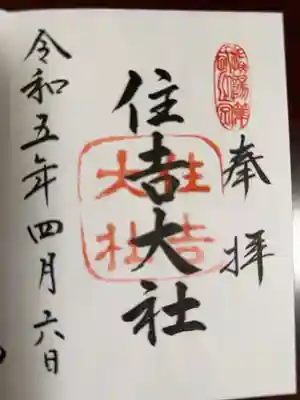 奉拝
住吉大社
住吉大社
令和五年四月六日